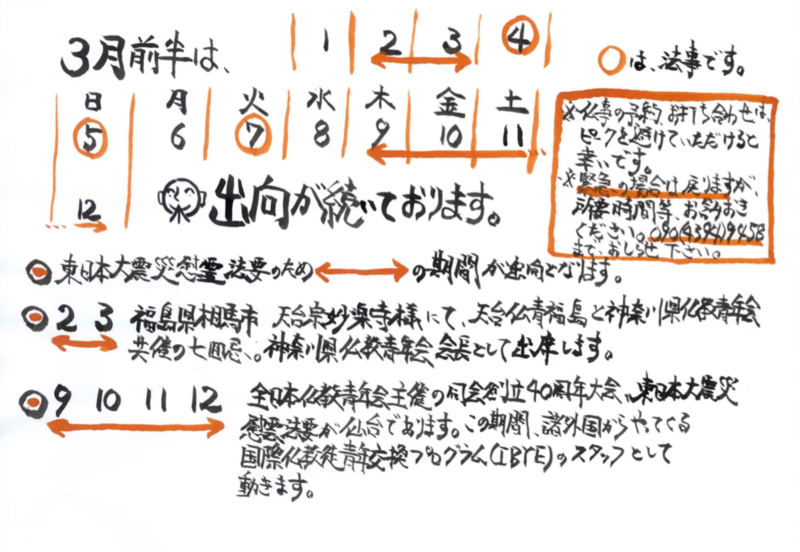 3月前半は、
1 2 3 4
○は、法事です。
日 月 火 水 木 金 土
5 6 7 8 9 10 11
12
出向が続いております。
※仏事の予約、お打ち合わせは、
ピンクを避けていただけると
幸いです。
※緊急の場合は戻りますが、
所要時間等、お含みおき
ください。090(4394)9458
まで、おしらせ下さい。
東日本大震災慰霊法要のため⟷の期間が出向となります。
2 3 福島県相馬市 天台宗妙楽寺様にて、天台仏青福島と神奈川県仏教青年会
共催の七回忌、。神奈川県仏教青年会会長として出席します。
9 10 11 12 全日本仏教青年会主催の同会創立40周年大会、東日本大震災
慰霊法要が仙台であります。この期間、諸外国からやってくる
国際仏教徒青年交換プログラム(IBYE)のスタッフとして
動きます。